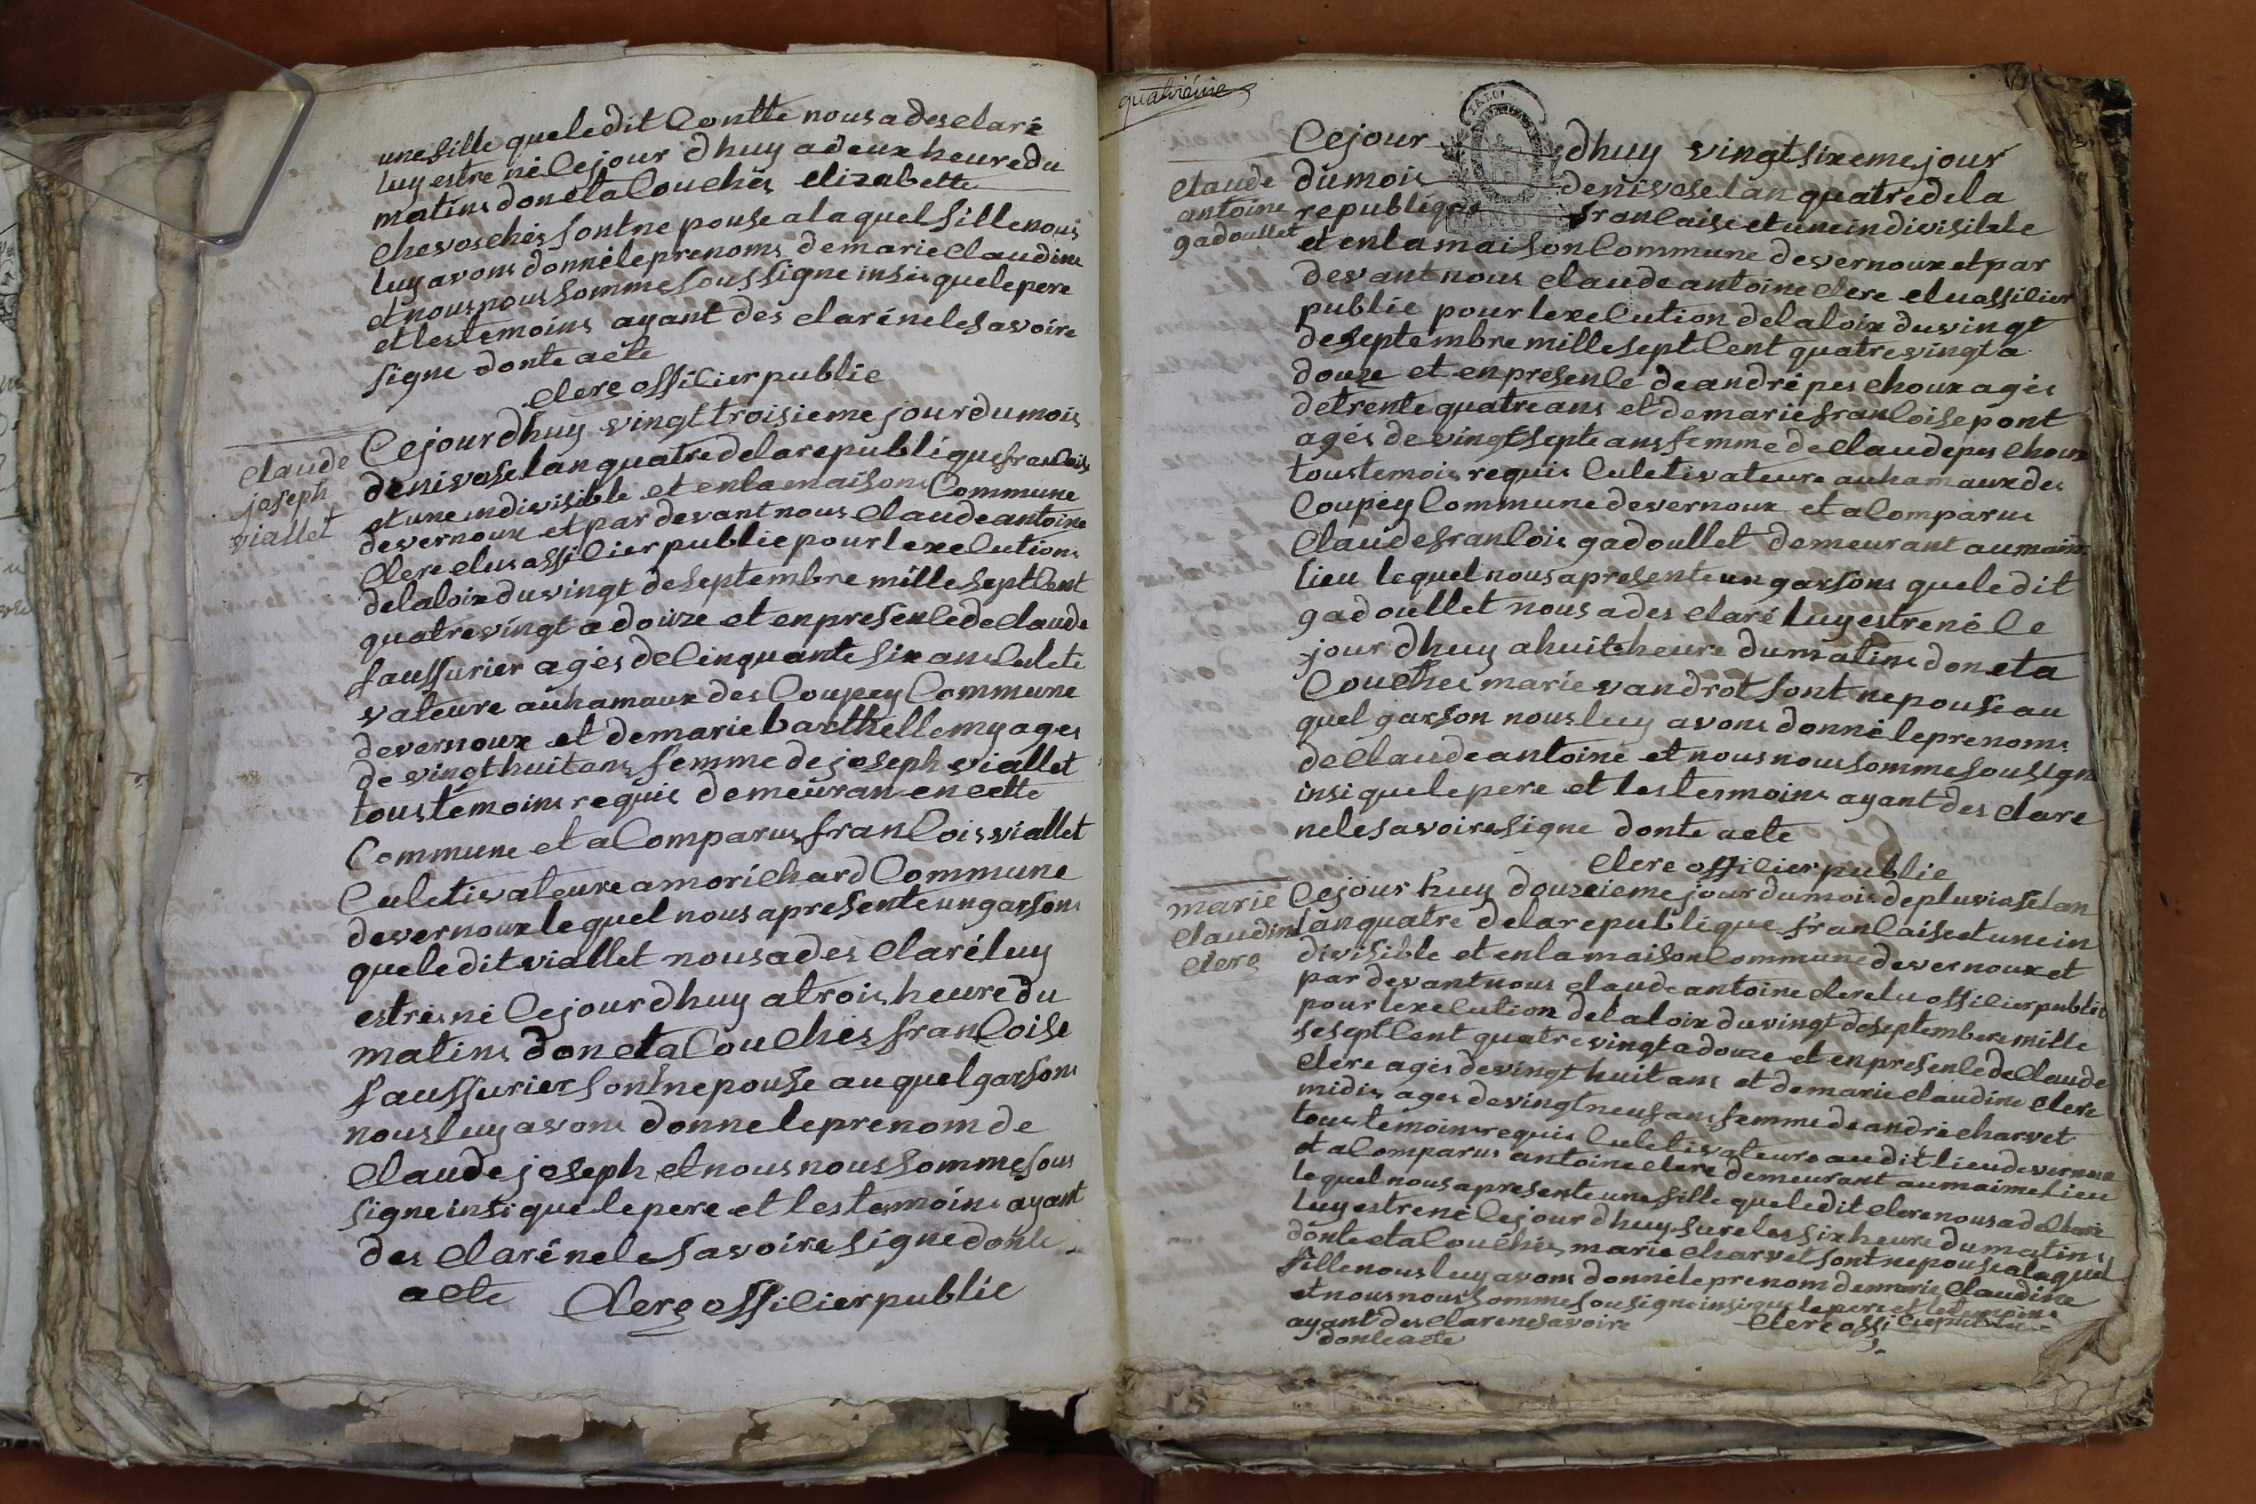 une fille que le dit Contte nous a des claré
luy estre né Ce jour dhuy a deux heure du
matins don et a Couchés elizabette
Chevoschés sont ne pouse a la quel fille nous
luy avons donné le prenoms de marie Claudine
et nous nous somme sous signe insis que le pere
et les temoins ayant des claré ne le savoire
signe donte acte
Clerc offilier public
Claude
joseph
viallet
Ce jour dhuy vingt troisieme jour du mois
de nivose lan quatre de la republique franloise
et une indivisible et en la maisons Commune
de vernoux et par devant nous Claude antoine
Clerc elus affilier public pour lexelutions
de la loix du vingt de septembre mille sept Cent
quatre vingt a douze et en presenle de Claude
saussurier agés de Cinquante six ans Culeti
vateure au hamaux des Coupey Commune
de vernoux et de marie barthellemy ages
de vingt huit ans femme de joseph viallet
tous temoins requis demeuran en cette
Commune et a Comparus franlois viallet
Culetivateure a morichard Commune
de vernoux le quel nous a presente un garsons
que le dit viallet nous a des Claré luy
estre né Ce jour dhuy a trois heure du
matins don et a Couchés franloise
saussurier sont ne pouse au quel garsons
nous luy avons donne le prenom de
Claude joseph et nous nous somme sous
signe insi que le pere et les temoins ayant
des Claré ne le savoire signe donte
acte Clerc offilier public
quatriéme
Claude
antoine
gadoullet
Ce jour dhuy vingt sixeme jour
du mois de nivose lan quatre de la
republique franlaise et une indivisible
et en la maison Commune de vernoux et par
devant nous claude antoine Clerc elu affilier
public pour lexelution de la loix du vingt
de septembre mille sept Cent quatre vingt a
douze et en presenle de andré peschoux agés
de trente quatre ans et de marie franloise pont
agés de vingt septe ans femme de Claude peschoux
tous temois requis Culetivateure au hamaux des
Coupey Commune de vernoux et a Comparus
Claude franlois gadoullet demeurant au maime
lieu le quel nous a presente un garsons que le dit
gadoullet nous a des claré luy estre né Ce
jour dhuy a huit heure du matins don et a
Couchés marie vandrot sont ne pouse au
quel garson nous luy avons donné le prenoms
de Claude antoine et nous nous somme sou sign
insi que le pere et les temoins ayant des clare
ne le savoire signe donte acte
Clerc offilier public
marie
Claudine
Clerc
Ce jour huy douzieme jour du mois de pluviose lan
lan quatre de la republique franlaise et une in
divisible et en la maison Commune de vernoux et
par devant nous claude antoine clerc elu offilier public
pour lexelution de la loix du vingt de septembere mille
se sept Cent quatre vingt a douze et en presenle de Claude
Clerc ages de vingt huit ans et de marie Claudine Clerc
midis ages de vingt neuf ans femme de andré charvet
tous temoins requis Culetivateure au dit lieu de vernoux
et a Comparus antoine clerc demeurant au maime lieu
le quel nous a presente une fille que le dit clerc nous a declaré
luy estre né Ce jour dhuy sure les six heure du matins
donte et a Couchés marie Charvet sont ne pouse a la quel
fille nous luy avons donné le prenom de marie Claudine
et nous nous somme sou signe insi que le pere et les temoins
ayant des clare ne savoire Clerc offi cier public
donte acte